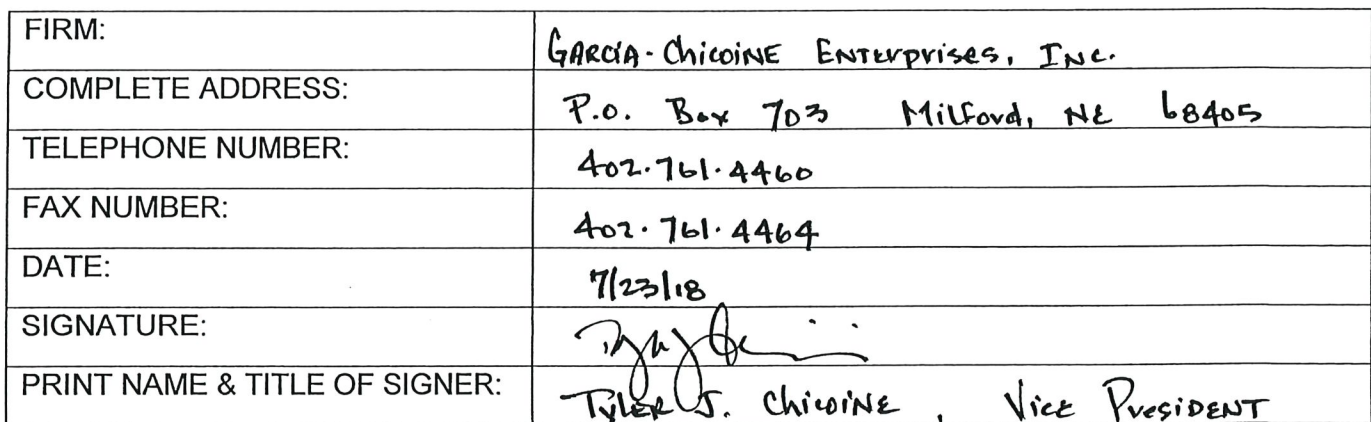 FIRM: GARCIA-Chicoine Enterprises, Inc.
COMPLETE ADDRESS: P.O. Box 703 Milford, NE 68405
TELEPHONE NUMBER: 402.761.4460
FAX NUMBER: 402.761.4464
DATE: 7/23/18
SIGNATURE:
PRINT NAME & TITLE OF SIGNER: Tyler J. Chicoine, Vice President